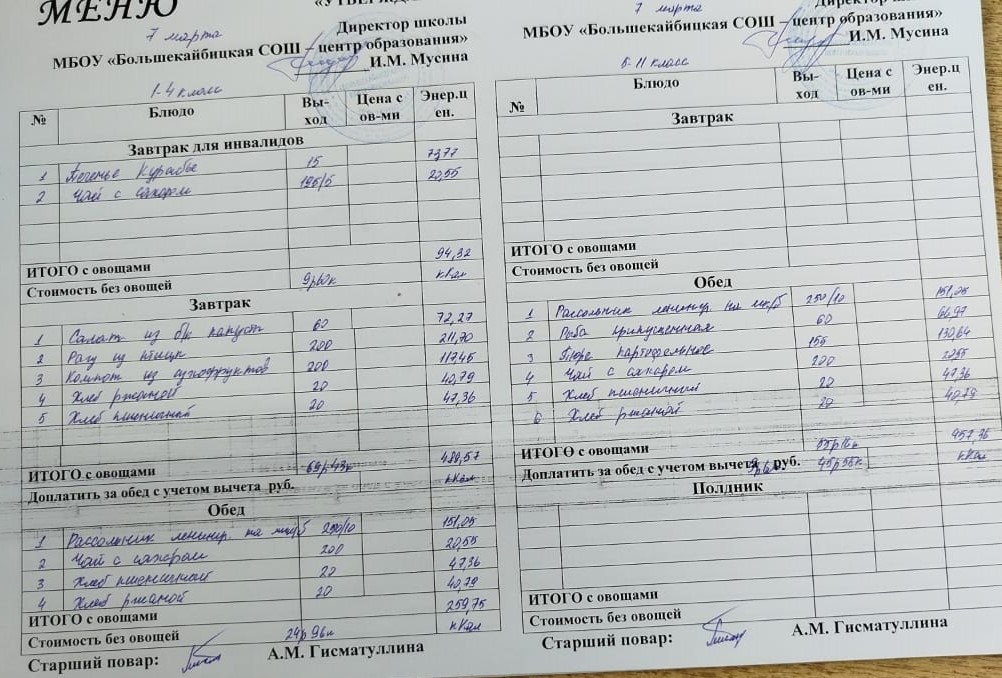 МЕНЮ
7 марта
Директор школы
МБОУ «Большекайбицкая СОШ – центр образования»
И.М. Мусина
1-4 класс
№ Блюдо Вы-ход Цена с ов-ми Энер.ц ен.
Завтрак для инвалидов
1 Печенье Курабье 15 73,77
2 Чай с сахаром 195/5 20,55
ИТОГО с овощами 94,32
Стоимость без овощей 9р60к кКал
Завтрак
1 Салат из б/к капуст 60 72,27
2 Рагу из птицы 200 211,70
3 Компот из сухофруктов 200 117,45
4 Хлеб ржаной 20 40,79
5 Хлеб пшеничный 20 47,36
ИТОГО с овощами 69р43к 489,57
Доплатить за обед с учетом вычета руб. кКал
Обед
1 Рассольник ленингр. на мк/б 250/10 151,05
2 Чай с сахаром 200 20,55
3 Хлеб пшеничный 20 47,36
4 Хлеб ржаной 20 40,79
ИТОГО с овощами 259,75
Стоимость без овощей 24р96к кКал
Старший повар: А.М. Гисматуллина
7 марта
Директор школы
МБОУ «Большекайбицкая СОШ – центр образования»
И.М. Мусина
5-11 класс
№ Блюдо Вы-ход Цена с ов-ми Энер.ц ен.
Завтрак
ИТОГО с овощами
Стоимость без овощей
Обед
1 Рассольник ленингр. на мк/б 250/10 151,05
2 Рыба припущенная 60 66,97
3 Пюре картофельное 155 130,64
4 Чай с сахаром 200 20,55
5 Хлеб пшеничный 20 47,36
6 Хлеб ржаной 20 40,79
ИТОГО с овощами 55р16к 457,36
Доплатить за обед с учетом вычета руб. 45р56к кКал
Полдник
ИТОГО с овощами
Стоимость без овощей
Старший повар: А.М. Гисматуллина